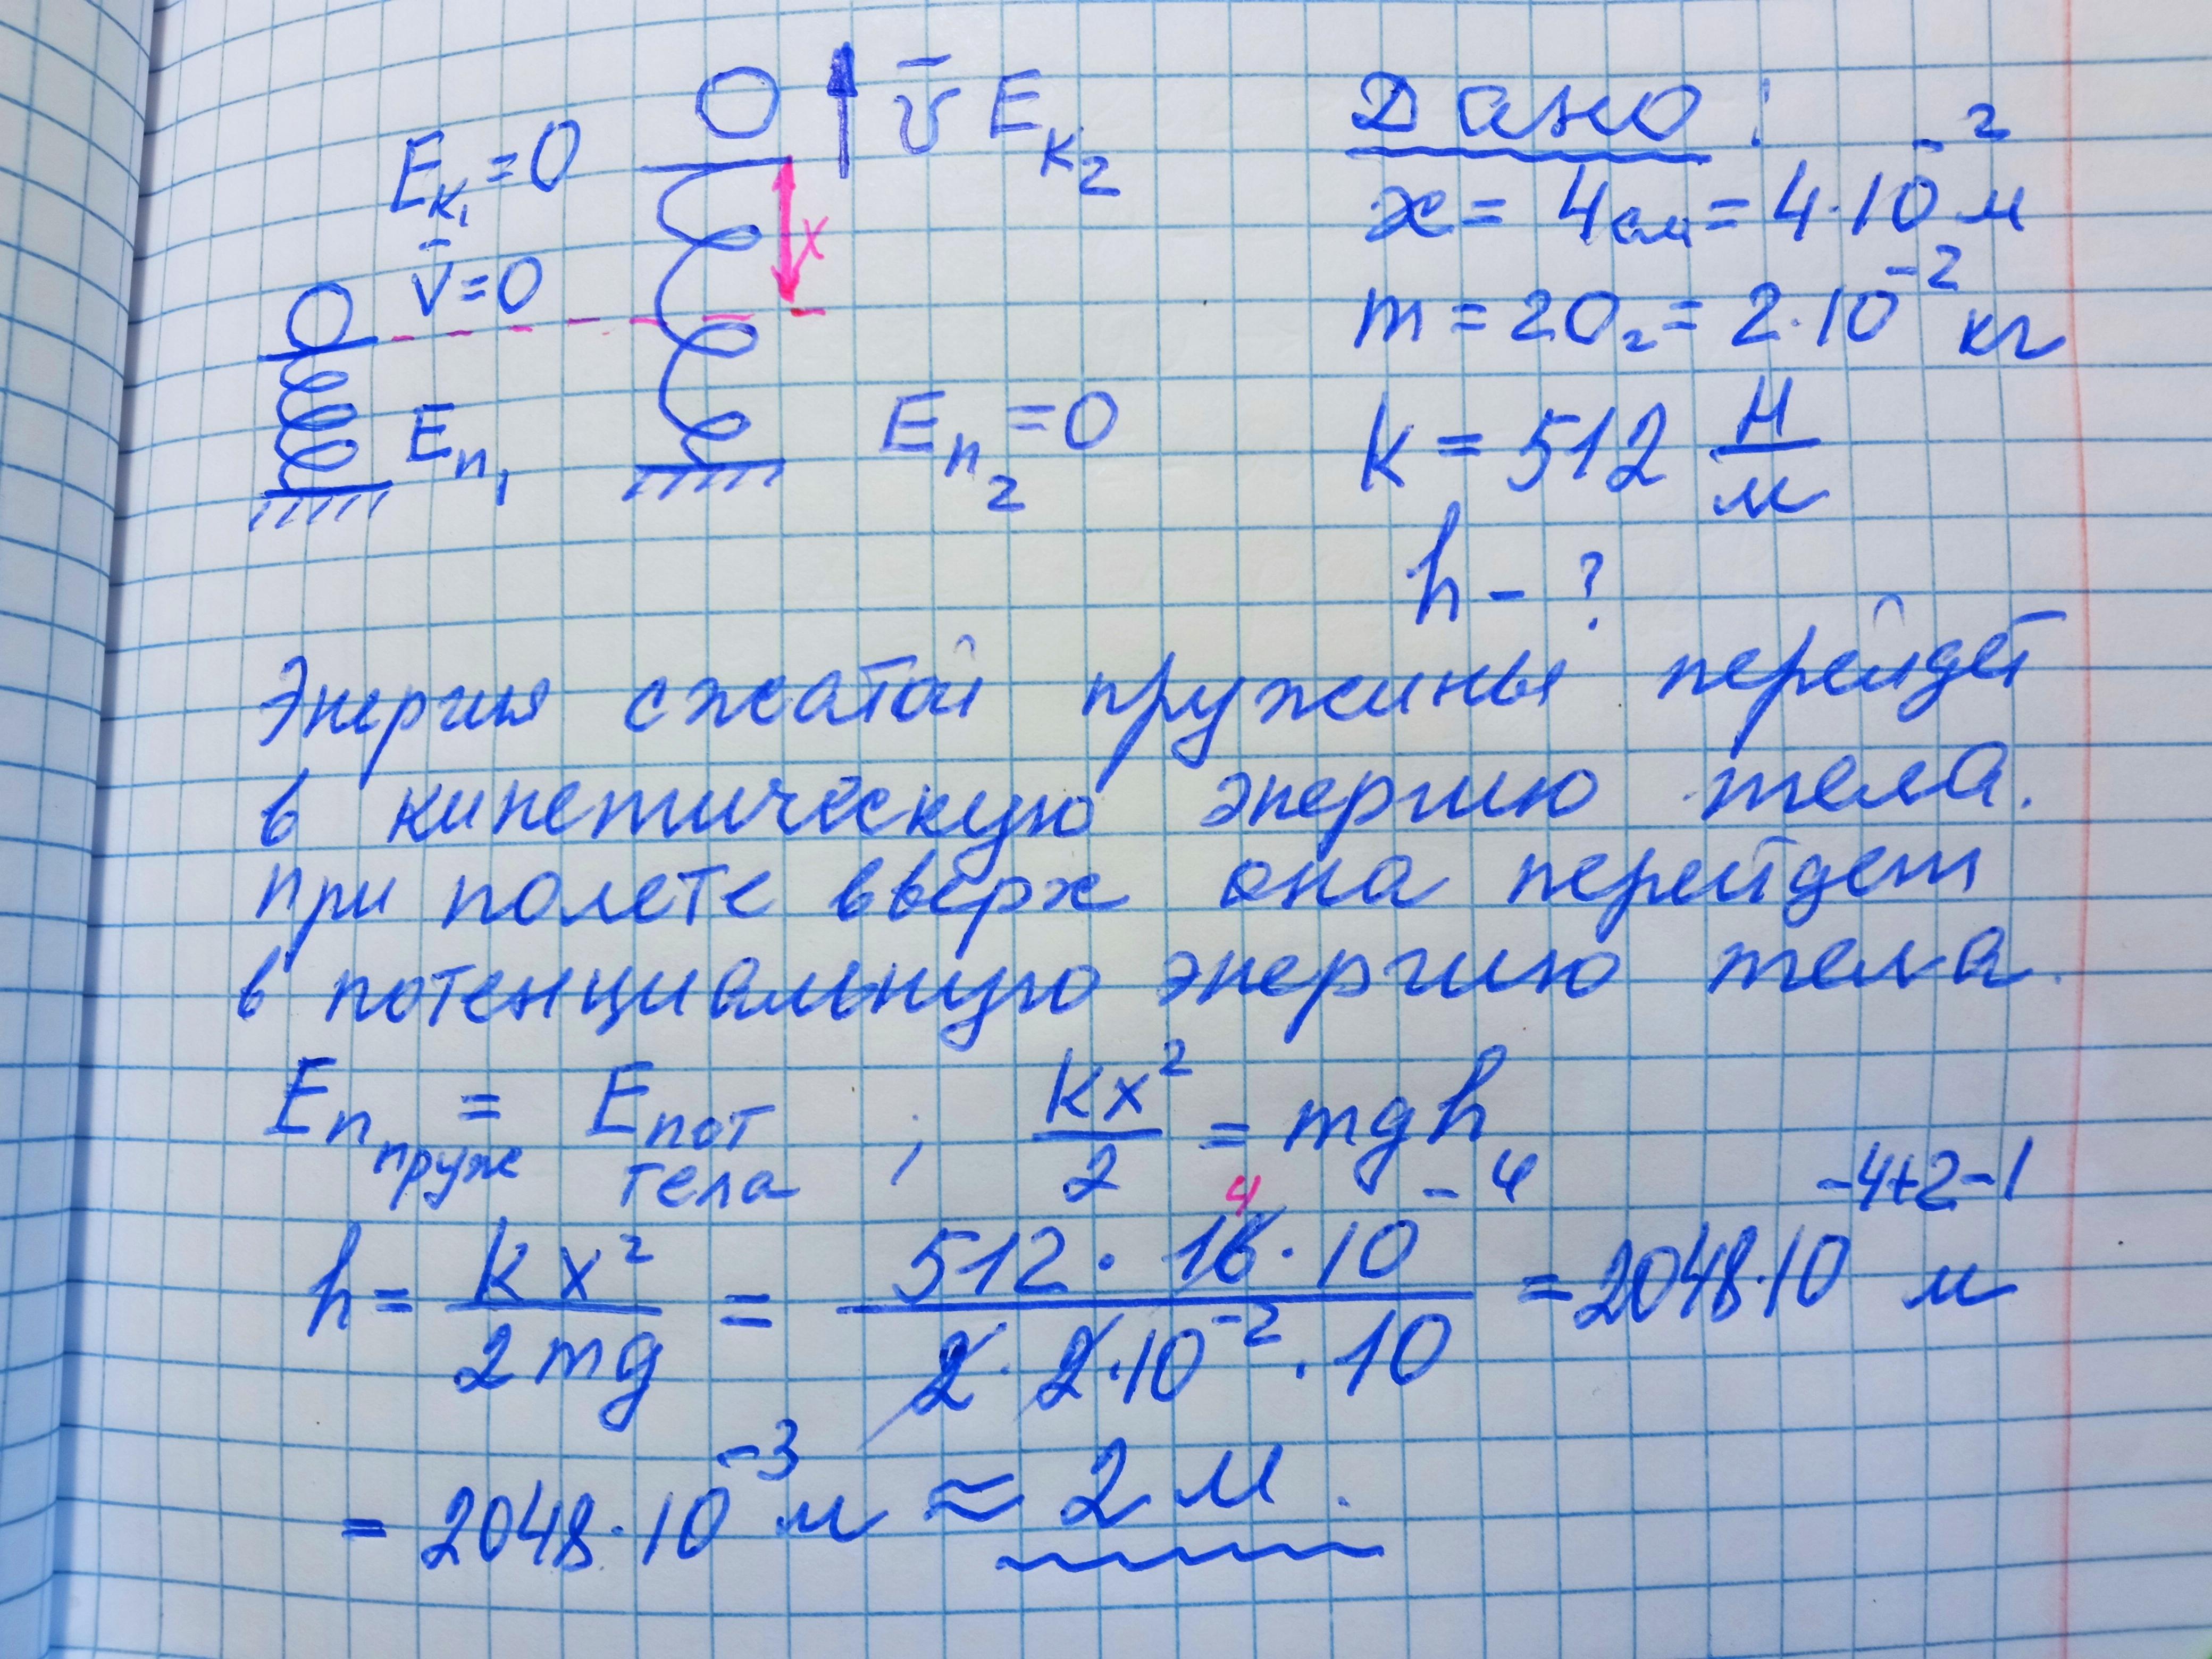 E_к₁ = 0
v̄ = 0
E_п₁
v̄ E_к₂
x
E_п₂ = 0
Дано:
x = 4см = 4·10⁻² м
m = 20г = 2·10⁻² кг
k = 512 Н/м
h - ?
Энергия сжатой пружины перейдёт
в кинетическую энергию тела.
При полете вверх она перейдет
в потенциальную энергию тела.
E_п пруж = E_пот тела ; kx²/2 = mgh
h = kx²/2mg = 512·16·10⁻⁴/2·2·10⁻²·10 = 2048·10⁻⁴⁺²⁻¹ м
4
= 2048·10⁻³ м ≈ 2 м.